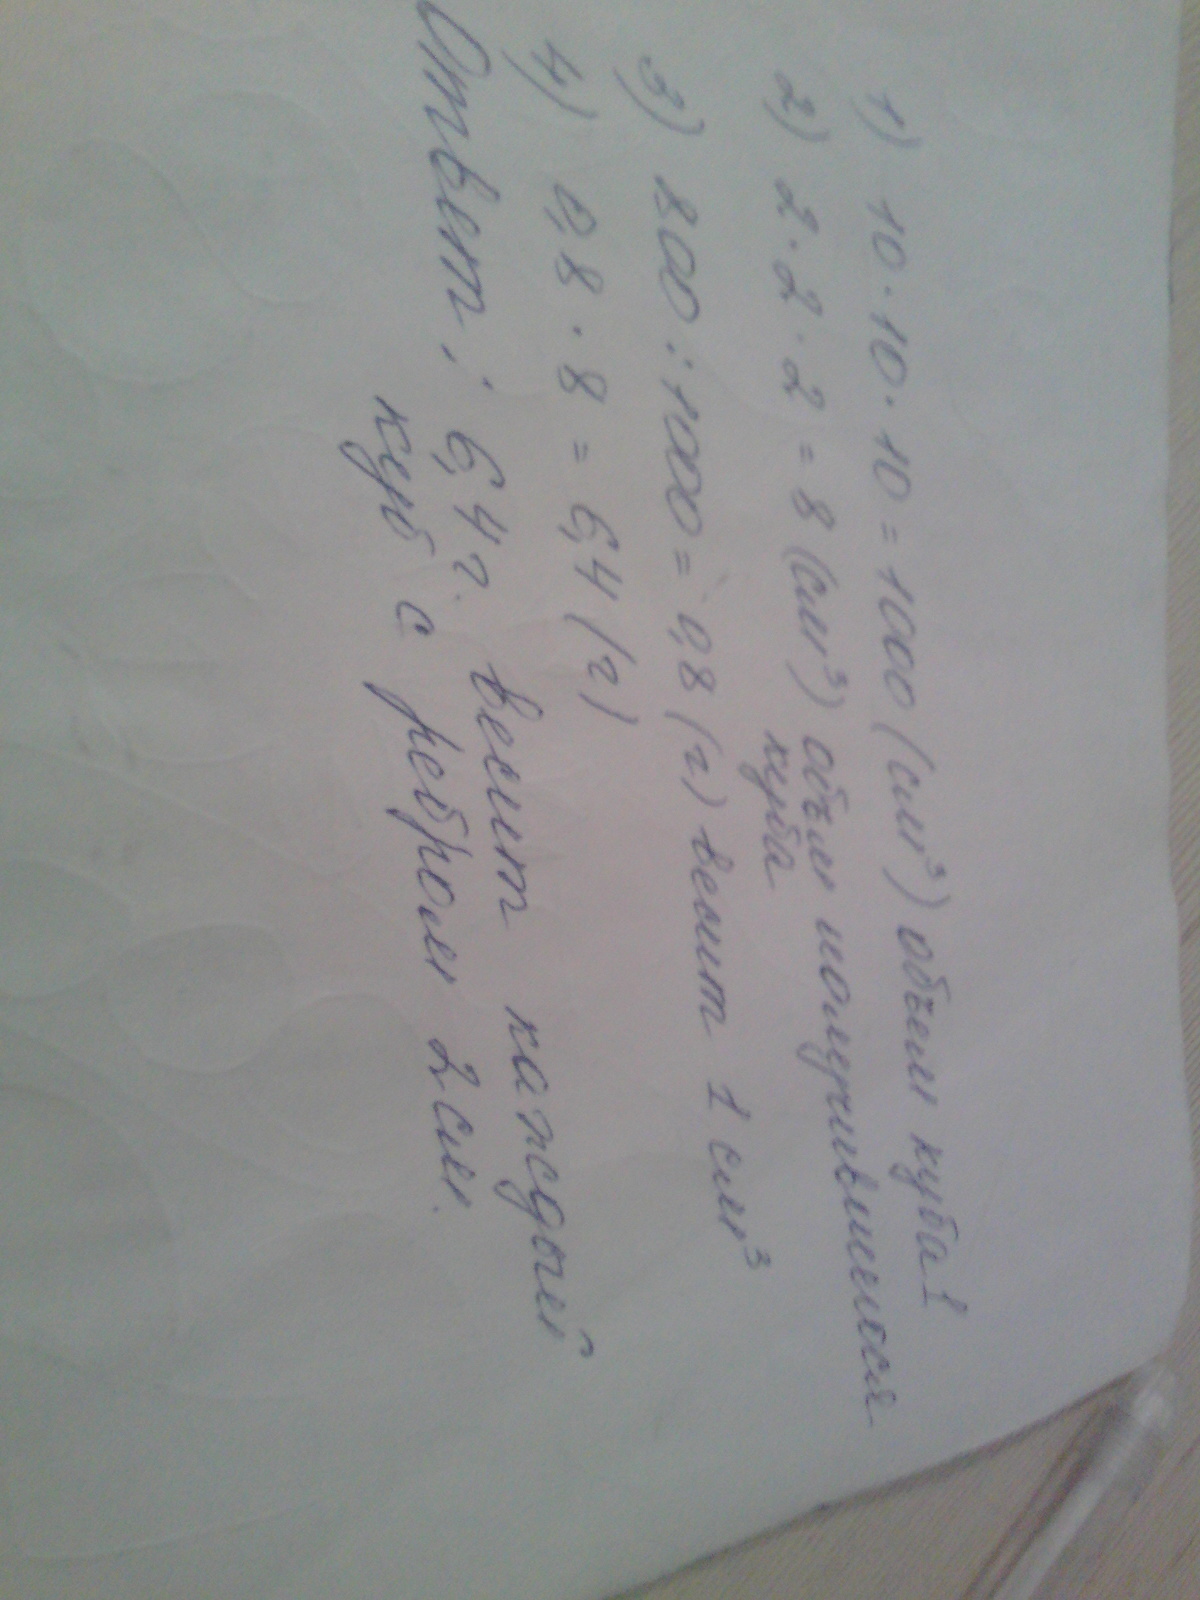 1) 10·10·10=1000 (см³) объем куба 1
2) 2·2·2=8 (см³) объем получившегося
куба
3) 800:1000=0,8 (г) весит 1 см³
4) 0,8·8=6,4 (г)
Ответ: 6,4 г. весит каждый
куб с ребром 2 см.